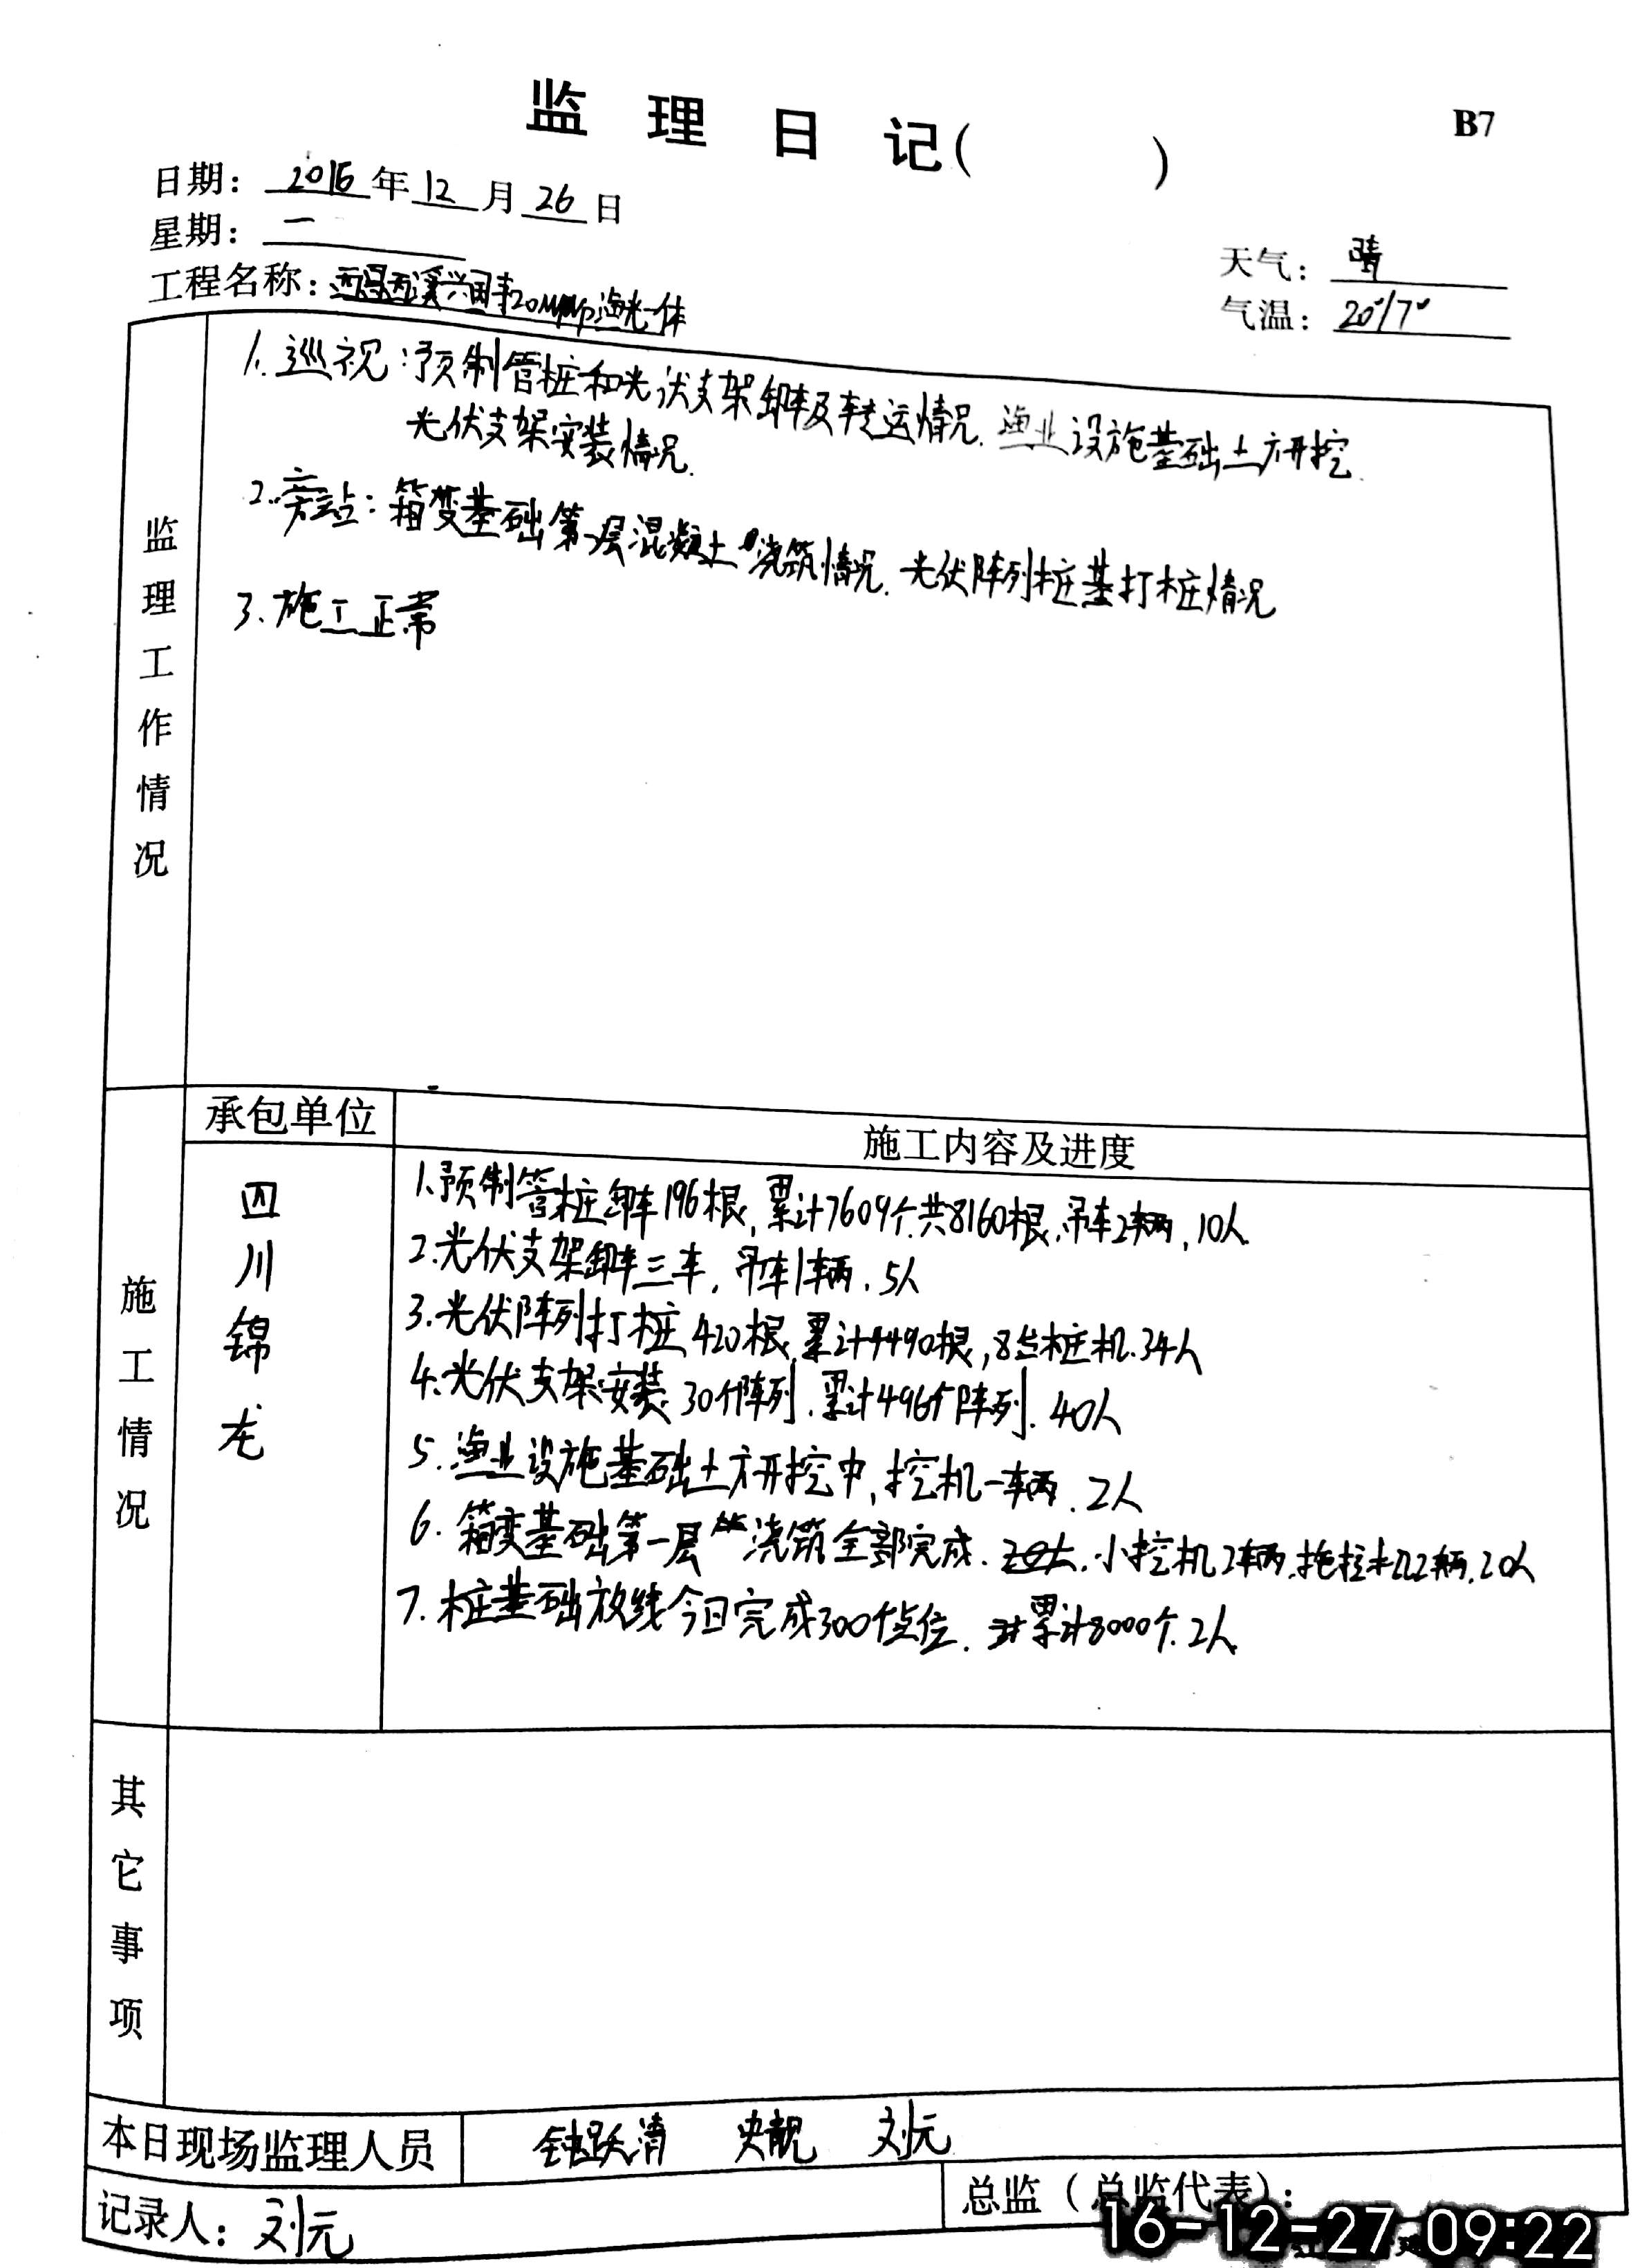 监理日记(          )
B7
日期：2016年12月26日
星期：一
天气：晴
工程名称：西昌西溪兴国寺20MWp渔光一体
气温：20°/7°
监理工作情况
1.巡视：预制管桩和光伏支架卸车及转运情况.渔业设施基础土方开挖.
光伏支架安装情况.
2.旁站：箱变基础第一层混凝土浇筑情况.光伏阵列桩基打桩情况
3.施工正常
施工情况
承包单位
施工内容及进度
四川锦龙
1.预制管桩卸车196根,累计7609个.共8160根.吊车2辆,10人
2.光伏支架卸车三车,吊车1辆.5人
3.光伏阵列打桩420根,累计4490根,8台桩机.34人
4.光伏支架安装30个阵列.累计496个阵列.40人
5.渔业设施基础土方开挖中,挖机一辆.2人
6.箱变基础第一层浇筑全部完成.小挖机2辆.拖拉机2辆.20人
7.桩基础放线今日完成300个点位.累计8000个.2人
其它事项
本日现场监理人员
钟跃清 刘元
记录人：刘元
总监（总监代表）：
16-12-27 09:22